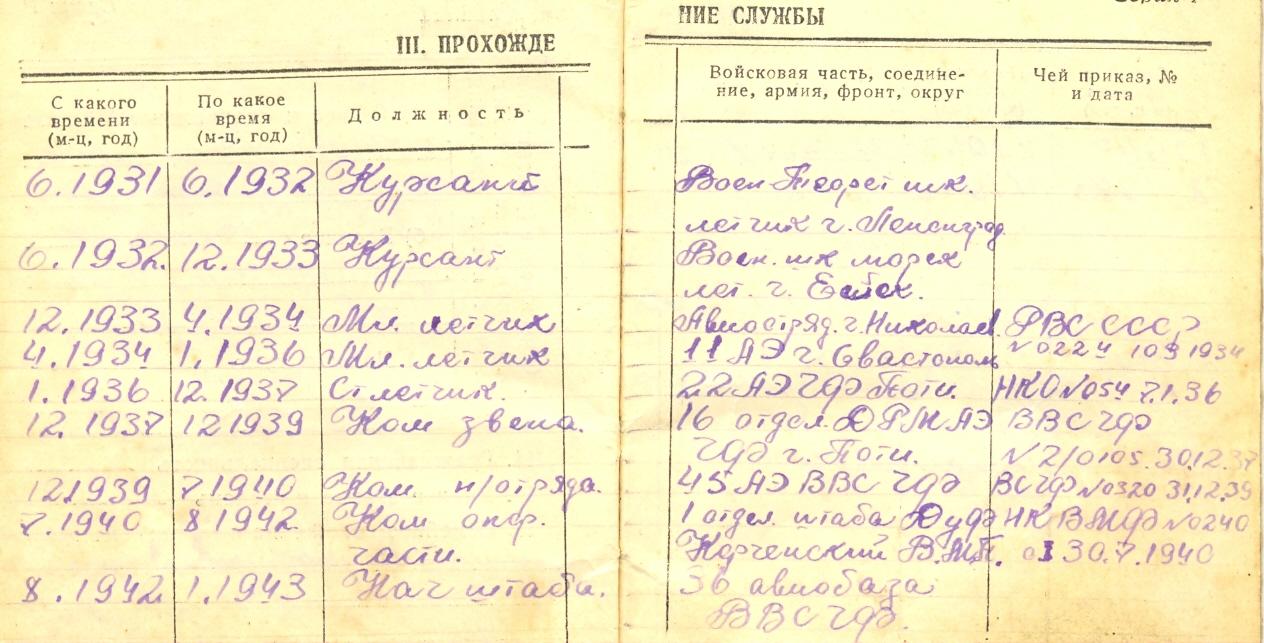 III. ПРОХОЖДЕНИЕ СЛУЖБЫ
С какого времени (м-ц, год) | По какое время (м-ц, год) | Должность | Войсковая часть, соединение, армия, фронт, округ | Чей приказ, № и дата
6.1931 6.1932 Курсант Воен. Теорет шк.
летчик г. Ленинград
6.1932. 12.1933 Курсант Воен. шк морск
лет. г. Ейск.
12.1933 4.1934 Мл. летчик Авиаотряд. г. Николаев. РВС СССР
4.1934 1.1936 Мл. летчик 11 АЭ г. Севастополь №0224 1934
1.1936 12.1937 Ст летчик. 22 АЭ ЧФ Поти. НКО №054 7.1.36
12.1937 12 1939 Ком звена. 16 отдел. АЭ ВВС ЧФ
ЧФ г. Поти. №2/0105. 30.12.37
12.1939 7 1940 Ком. н/отряда. 45 АЭ ВВС ЧФ ВС ЧФ №0320 31.12.39
7.1940 8 1942 Ком опер. 1 отдел. штаба НК ВМФ №0240
части. Керченский В.М.Б. от 30.7.1940
8.1942 1.1943 Нач штаба. 36 авиобаза
ВВС ЧФ.